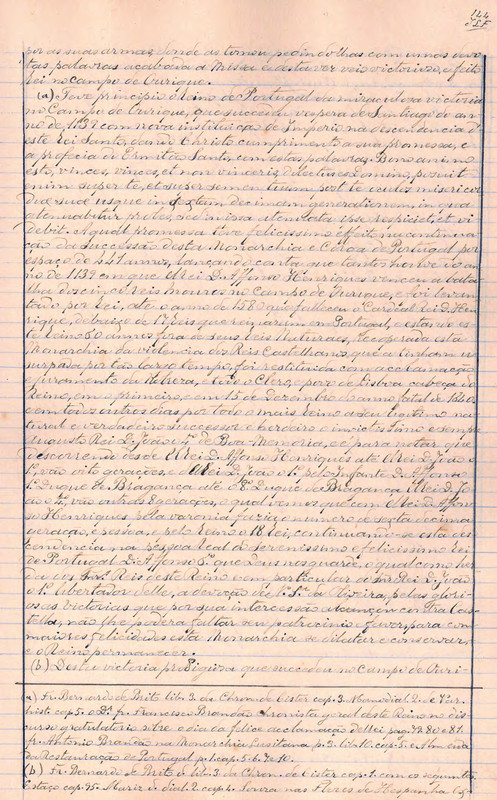 124
por as suas armas, donde se tornou pedindo lhas com umas devo-
tas palavras acabada a Missa e desta vez veio victorioso, e feito
Rei no campo de Ourique.
(a) Teve principio o Reino de Portugal da miraculosa victoria
no Campo de Ourique, que succedeu vespora de Santiago do an-
no de 1139 com nova instituição de Imperio na descendencia d'
este Rei Santo, dando Christo cumprimento a sua promessa, e
a profecia do Ermitão Santo, com estas palavras. Bono animo
esto, vinces, vinces, et non vinceris, dilectus es Domino, posuit
enim super te, et super semen tuum post te oculos misericor
diæ suæ usque in sextam decimam generationem, in qua
attenuabitur proles, sed in ipsa attenuata ipse respiciet, et vi
debit. A qual promessa teve felicissimo effeito na continua-
ção da successão desta Monarchia e Corôa de Portugal por
espaço de 441 annos, lançando conta que tantos houve do an-
no de 1139 em que El Rei D. Affonso Henriques venceu a bata-
lha dos cinco reis mouros no Campo de Ourique, e foi levan-
tado por Rei, até o anno de 1580 que falleceu o Cardeal Rei D. Hen-
rique, debaixo de 17 Reis que reinaram em Portugal, e estando es-
te Reino 60 annos fora de seus Reis Naturaes, Recoperada esta
Monarchia da violencia dos Reis Castelhanos, que a tinham u-
surpada por tão largo tempo, foi restituida com a acclamação
e juramento da Nobreza, e todo o Clero, e povo de Lisboa cabeça do
Reino, em o primeiro, e em 15 de Dezembro do anno fatal de 1640
com todos outros dias por todo o mais Reino a seu legitimo na-
tural e verdadeiro successor e herdeiro o invictissimo e sempre
Augusto Rei D. João o 4º de Boa Memoria, e é para notar que
descorrendo desde El Rei D. Affonso Henriques até El Rei D. João o
1º, vão oito gerações, e d'El Rei D. João o 1º pelo Infante D. Affonso
1º Duque de Bragança até o 8º Duque de Bragança El Rei D. Jo-
ão o 4º, vão outras 8 gerações, o qual vemos que com El Rei D. Affon-
so Henriques pela varonia fazia o numero de sexta decima
geração, e pessoa, e pelo Reino o 18 Rei, continuando-se esta des-
cendencia na pessoa Real do Serenissimo e felicissimo Rei
de Portugal D. Affonso 6º que Deus nos guarde, o qual como her-
da dos Snrs. Reis deste Reino e em particular do Snr. Rei D. João
o 1º libertador delle, a devoção de N. Srª da Oliveira, pelas glori-
osas victorias que por sua intercessão alcançou contra Cas-
tella, não lhe poderá faltar seu patrocinio e favor, para com
maiores felicidades esta Monarchia se dilatar e conservar,
e o Reino permanecer.
(b) Desta victoria prodigiosa que succedeu no Campo de Ouri-
(a) Fr. Bernardo de Brito lib. 3. da Chron. de Cister cap. 3. Maris dial 2.
hist. cap. 5. o Dr. fr. Francisco Brandão Chronista geral deste Reino no dis-
curso gratulatorio sobre o dia da felice acclamação del Rei pag. 79. 80 e 81.
fr. Antonio Brandão na Monarchia Lusitana p. 3. lib. 10. cap. 5.
da Restauração de Portugal p. 1. cap. 5. 6. 7 e 10.
(b) Fr. Bernardo de Brito d. lib. 3. da Chron. de Cister cap. 1. com os seguintes
Estaço cap. 45. Mariz d. dial. 2. cap. 4. Souza nas Flores de Hespanha